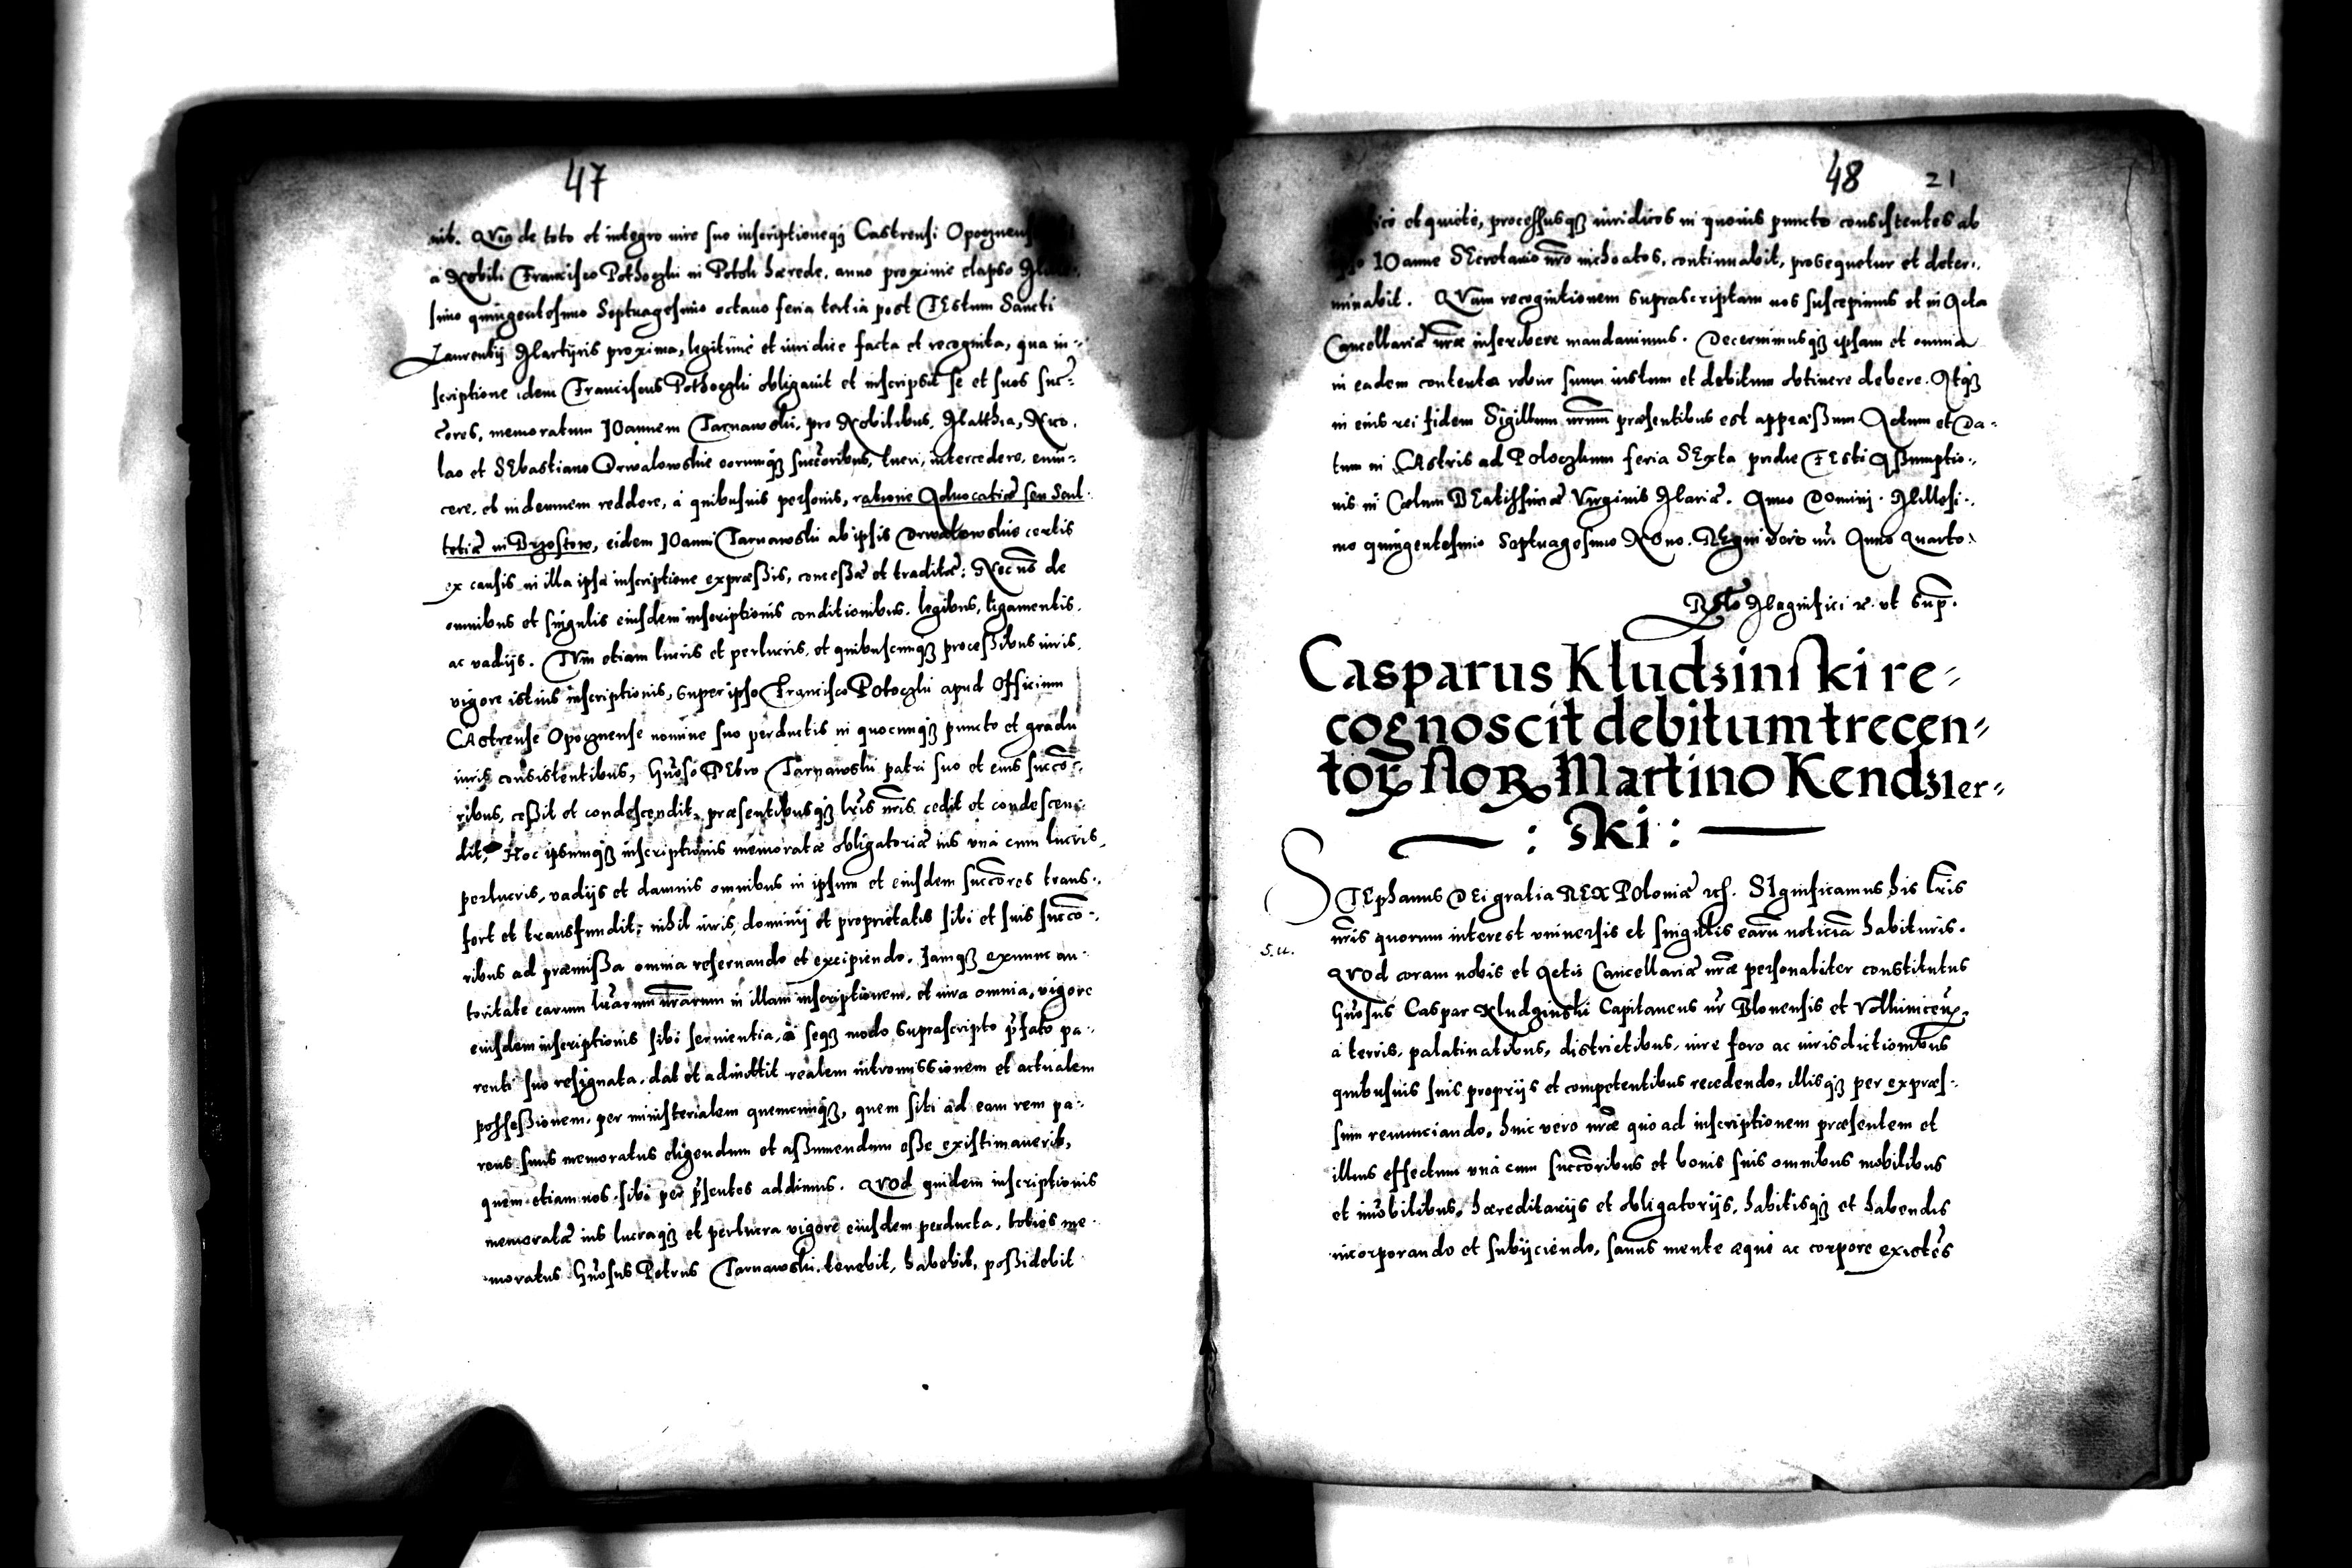 47
nit. QVia de toto et integro iure suo inscriptioneqʒ Castrensi Opocznensi
a Nobili Francisco Pothoczki in Potok hærede, anno proxime elapso
simo quingentesimo Septuagesimo octavo feria tertia post FEstum Sancti
Laurentij Martÿris proxima, legitimè et iuridice facta et recognita, qua in-
scriptione idem Franciscus Pothoczki obligauit et inscripsit se et suos suc-
cores, memoratum IOannem Tarnawski, pro Nobilibus, Matthia, Nico.
lao et SEbastiano Drwalowskie eorumqʒ succoribus, tueri, intercedere, euin-
cere, et indemnem reddere, à quibusuis personis, ratione Aduocatiæ seu Scul-
tetiæ in Brzostow, eidem IOanni Tarnawski ab ipsis Drwalowskie certis
ex causis in illa ipsa inscriptione expræßis, conceßæ et traditæ: Nec nõ de
omnibus et singulis eiusdem inscriptionis conditionibus, legibus, ligamentis,
ac vadijs. TVm etiam lucris et perlucris, et quibuscunqʒ proceßibus iuris,
vigore istius inscriptionis, super ipso Francisco Potoczki apud Officium
CAstrense Opocznense nomine suo perductis in quocunqʒ puncto et gradu
iuris consistentibus, Gñoso PEtro Tarnawski patri suo et eius succo-
ribus, ceßit et condescendit, præsentibusqʒ lr̃is nr̃is cedit et condescen-
dit, Hoc ipsumqʒ inscriptionis memoratæ obligatoriæ ius vnà cum lucris,
perlucris, vadijs et damnis omnibus in ipsum et eiusdem succores trans-
fert et transfundit, nihil iuris, dominij et proprietatis sibi et suis succo-
ribus ad præmißa omnia reseruando et excipiendo. Iamqʒ exnunc au-
toritate earum lr̃arum nr̃arum in illam inscriptionem, et iura omnia, vigore
eiusdem inscriptionis sibi seruientia, à seqʒ modo suprascripto p̃fato pa-
renti suo resignata, dat et admittit realem intromissionem et actualem
posseßionem, per ministerialem quemcunqʒ, quem sibi ad eam rem pa-
rens suus memoratus eligendum et aßumendum eße existimauerit,
quem etiam nos sibi per p̃sentes addimus. QVOd quidem inscriptionis
memoratæ ius lucraqʒ et perlucra vigore eiusdem perducta, toties me-
moratus Gñosus Petrus Tarnawski, tenebit, habebit, poßidebit
48 21
et quietè, processusqʒ iuridicos in quouis puncto consistentes ab
IOanne SEcretario nr̃o inchoatos, continuabit, prosequetur et deter-
minabit. QVam recognitionem suprascriptam nos suscepimus et in Acta
Cancellariæ nr̃æ inscribere mandauimus. Decernimusqʒ ipsam et omnia
in eadem contenta robur suum iustum et debitum obtinere debere. Atqʒ
in eius rei fidem Sigillum nr̃um præsentibus est appræßum Actum et Da-
tum in CAstris ad Poloczkum feria SExta pridie FEsti Aßumptio-
nis in Cœlum BEatissimæ Virginis Mariæ. Anno Domini Millesi-
mo quingentesimo Septuagesimo Nono. REgni vero nr̃i Anno Quarto.
RElo Magnifici r. vt sup.
Casparus Kludzinski re-
cognoscit debitum trecen-
toꝝ floꝝ Martino Kendzier-
: ski :
STEphanus DEi gratia REX POloniæ etc. SIgnificamus his lr̃is
nr̃is quorum interest vniuersis et singulis earũ noticiã habituris.
QVOd coram nobis et Actis Cancellariæ nr̃æ personaliter constitutus
s.u.
Gñosus Caspar Kludzinski Capitaneus nr̃ Blonensis et
à terris, palatinatibus, districtibus, iure foro ac iurisdictionibus
quibusuis suis proprijs et competentibus recedendo, illisqʒ per expræs-
sum renunciando, huic vero nr̃æ quo ad inscriptionem præsentem et
illius effectum vnà cum succoribus et bonis suis omnibus mobilibus
et im̃obilibus, hæreditarijs et obligatorijs, habitisqʒ et habendis
incorporando et subijciendo, sanus mente æquè ac corpore existẽs